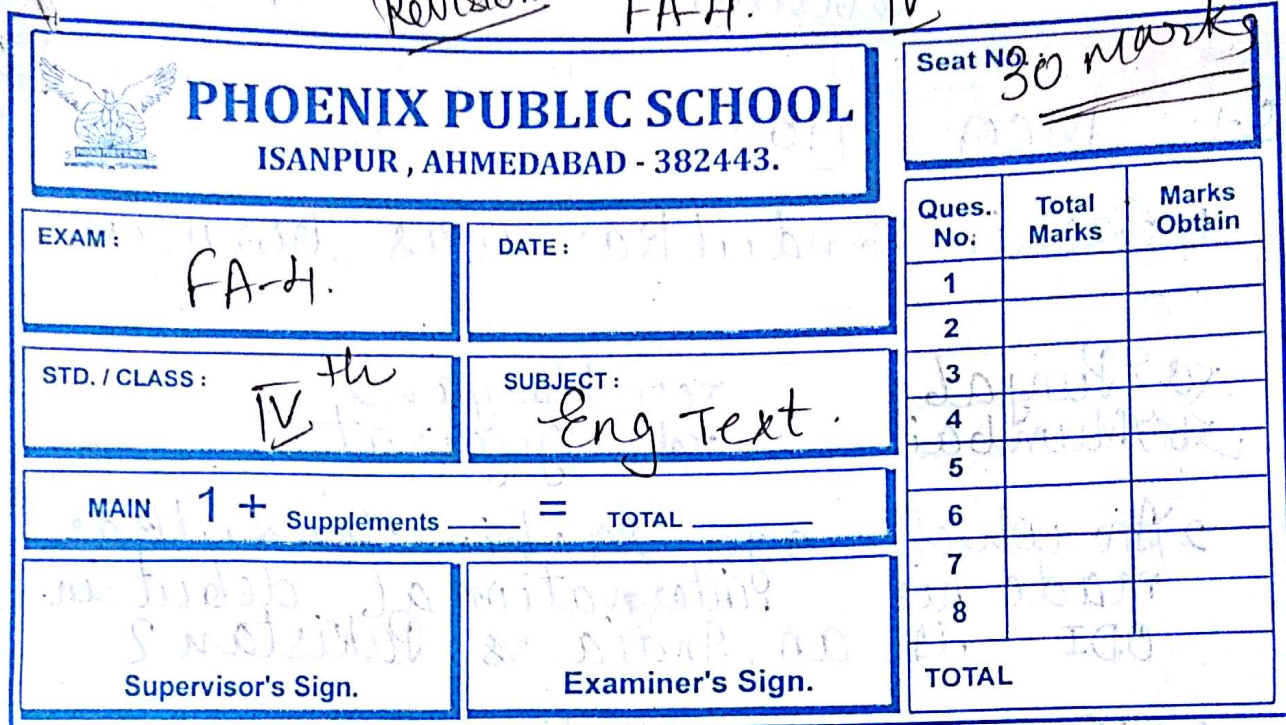 Revision FA-4. IV
PHOENIX PUBLIC SCHOOL
ISANPUR, AHMEDABAD - 382443.
Seat No.:
30 Marks
EXAM :
FA-4.
DATE :
STD. / CLASS :
IVth
SUBJECT :
Eng Text.
MAIN 1 + Supplements ____ = TOTAL ____
Supervisor's Sign.
Examiner's Sign.
Ques.. No: Total Marks Marks Obtain
1
2
3
4
5
6
7
8
TOTAL